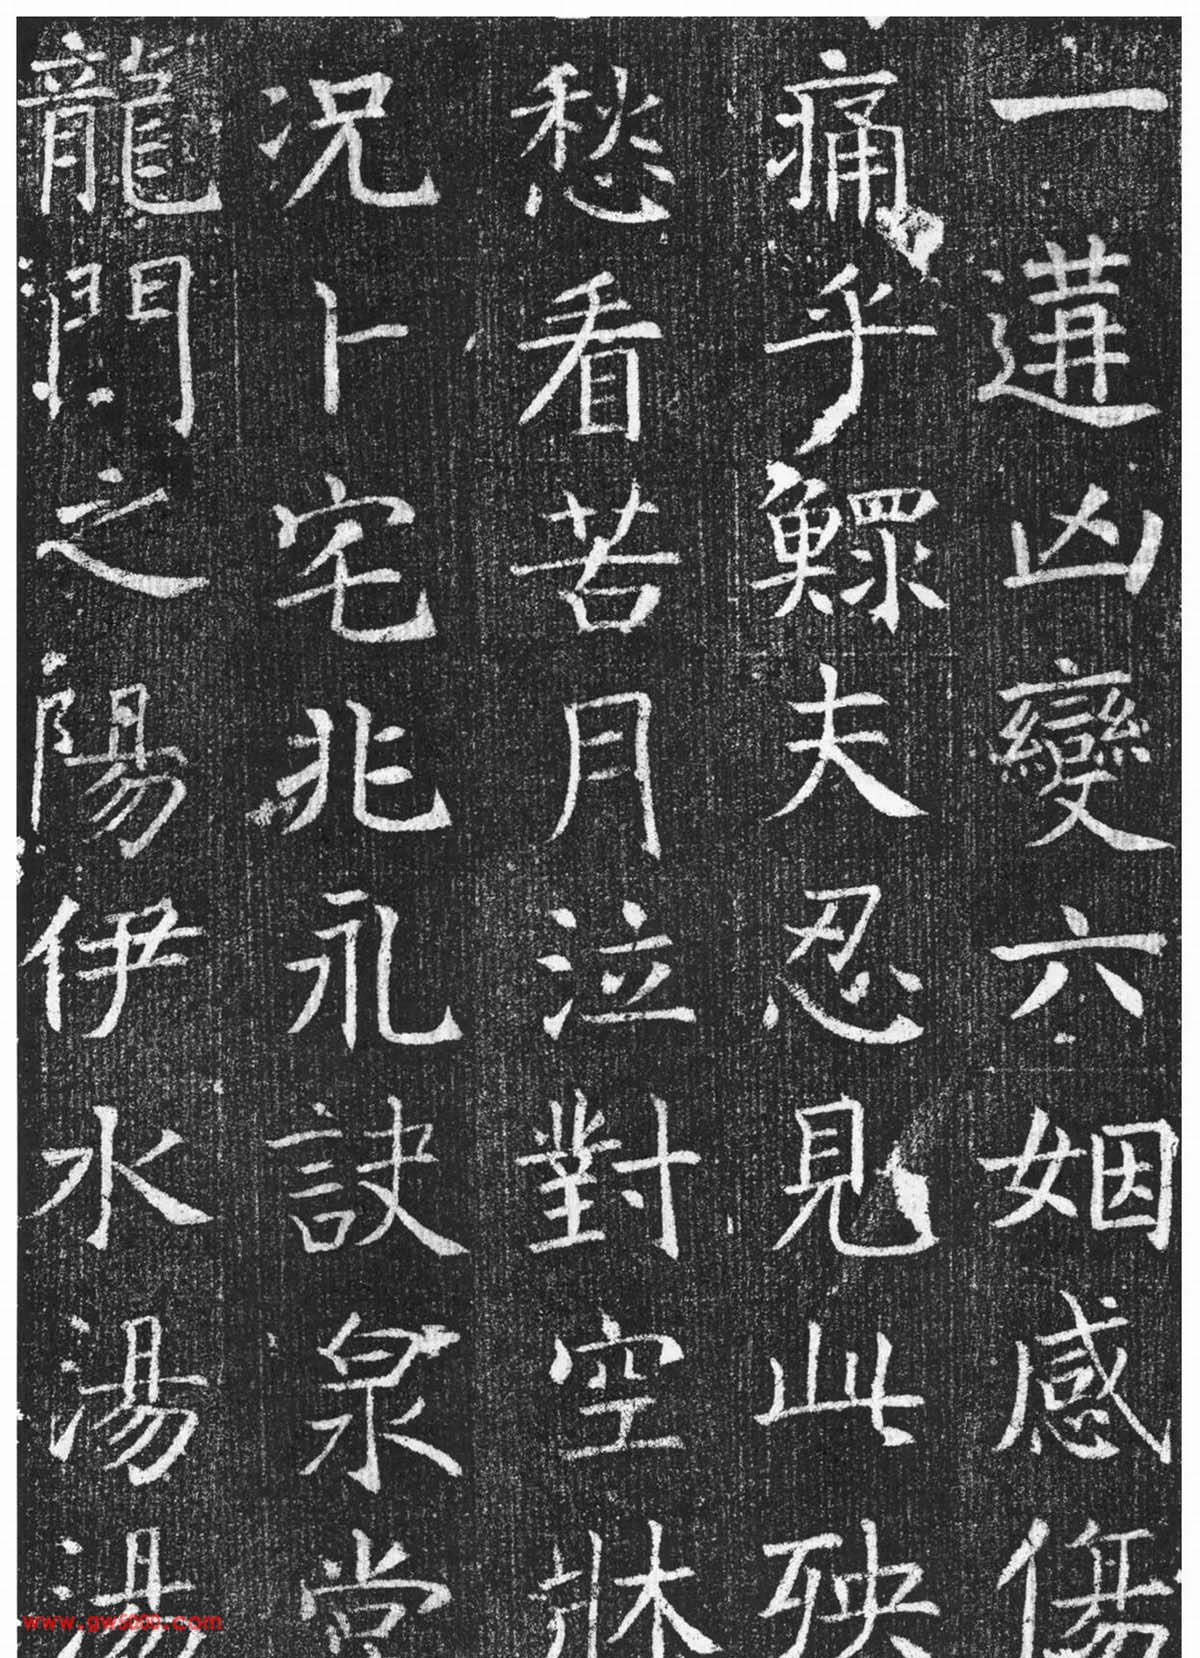 一遘凶變六姻感傷
痛乎鰥夫忍見此殃
愁看苦月泣對空牀
况卜宅兆永訣泉堂
龍門之陽伊水湯湯
www.gw5000.com